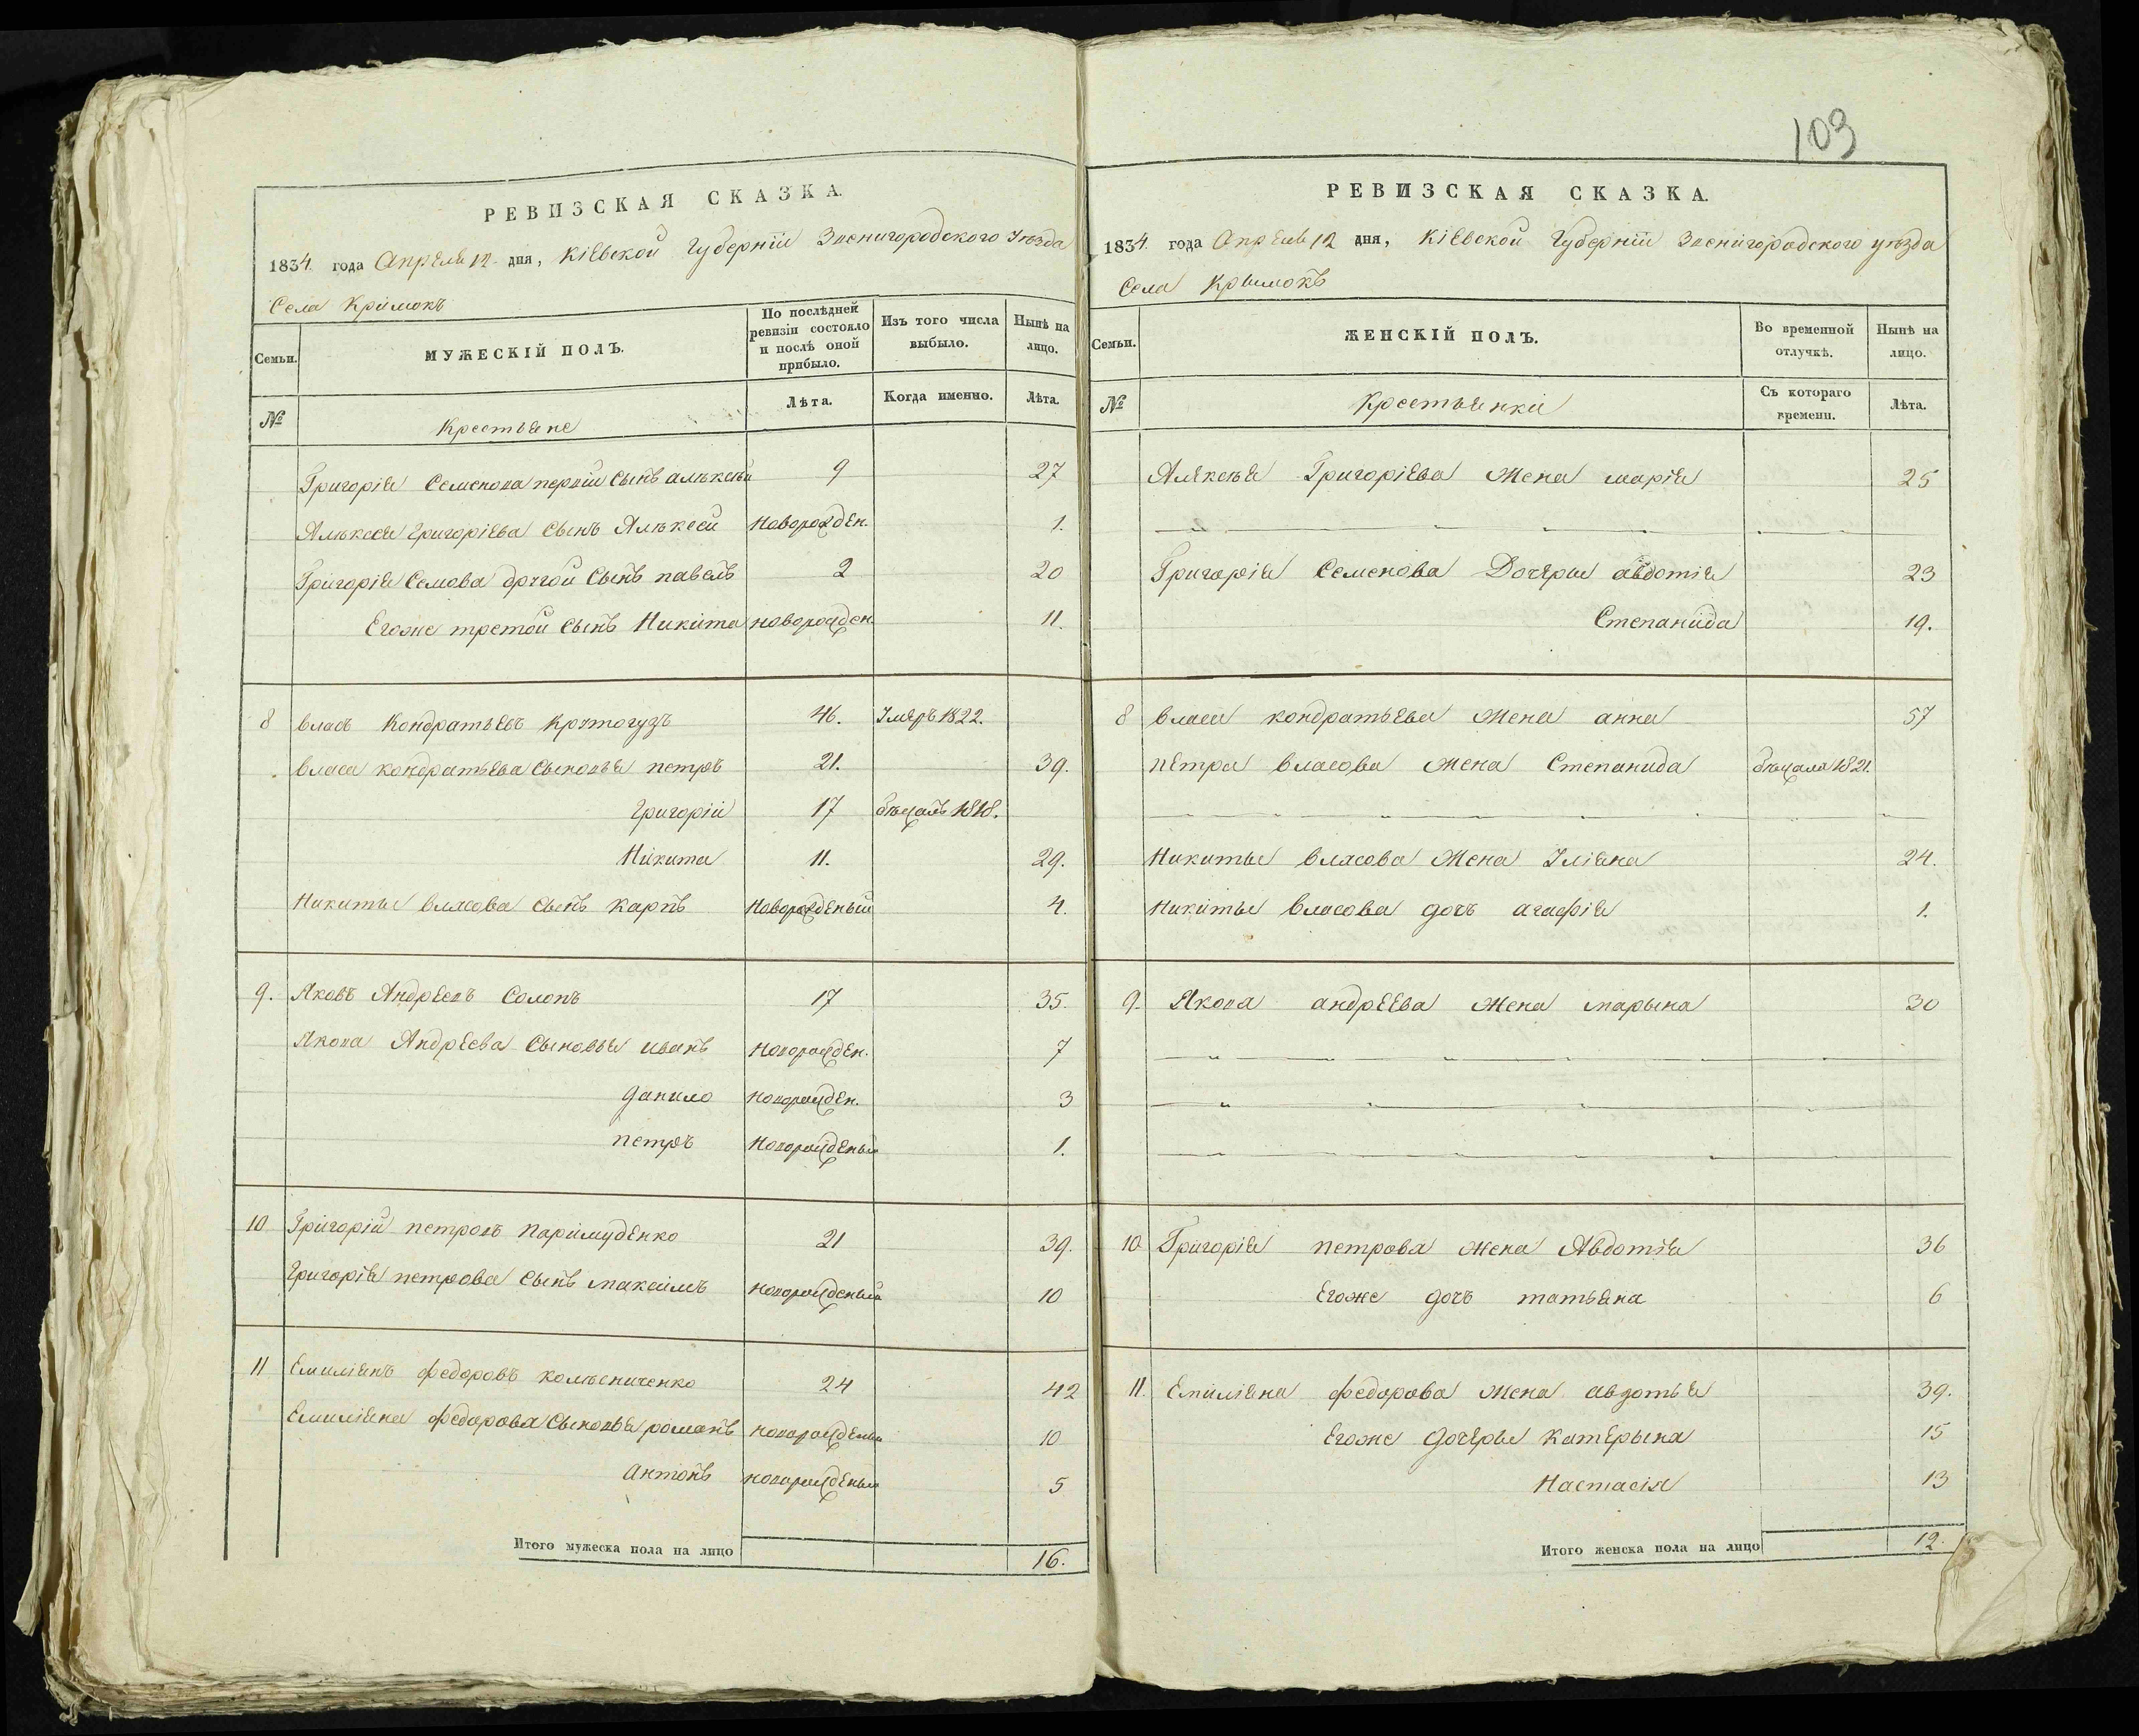 103
РЕВИЗСКАЯ СКАЗКА.
1834. года Апреля 12. дня, Кіевской Губерніи Звенигородского Уезда
Села Кримокъ
Семьи.
МУЖЕСКІЙ ПОЛЪ.
По послѣдней ревизіи состояло и послѣ оной прибыло.
Изъ того числа выбыло.
Нынѣ на лицо.
№
Крестьяне
Лѣта.
Когда именно.
Лѣта.
Григорія Семенова первій сынъ алѣксѣй 9 27
Алѣксея Григоріева сынъ Алѣксей новорожден. 1.
Григорія Семова другой сынъ павелъ 2 20
Егоже третой сынъ Никита новорожден. 11.
8 власъ Кондратьевъ Крутогузъ 46. Умеръ 1822.
власа кондратьева сыновья петръ 21. 39.
григорій 17 бежалъ 1818.
Никита 11. 29.
Никиты власова сынъ карпъ новорожденый 4.
9. Яковъ Андреевъ Солопъ 17 35.
Якова Андреева сыновья иванъ новорожден. 7
данило новорожден. 3
петръ новорожденый 1.
10 Григорій петровъ Паримуденко 21 39.
Григорія петрова сынъ максимъ новорожденый 10
11 Емиліянъ федоровъ колѣсниченко 24 42
Емиліяна федорова сыновья романъ новорожденый 10
антонъ новорожденый 5
Итого мужеска пола на лицо 16.
РЕВИЗСКАЯ СКАЗКА.
1834. года Апреля 12 дня, Кіевской Губерніи Звенигородского уезда
Села Крымокъ
Семьи.
ЖЕНСКІЙ ПОЛЪ.
Во временной отлучкѣ.
Нынѣ на лицо.
№
Крестьянки
Съ котораго времени.
Лѣта.
Алексѣя Григоріева жена марія 25
Григорія Семенова Дочеры авдотія 23
Степанида 19.
8 власа кондратьева жена анна 57
петра власова жена Степанида бежала 1821.
Никиты власова жена Уліяна 24.
Никиты власова дочъ агафія 1.
9. Якова андреева жена марына 30
10 Григорія петрова жена Авдотія 36
Егоже дочъ татьяна 6
11. Емиліяна федорова жена авдотья 39.
Егоже дочеры катерына 15
Настасія 13
Итого женска пола на лицо 12.